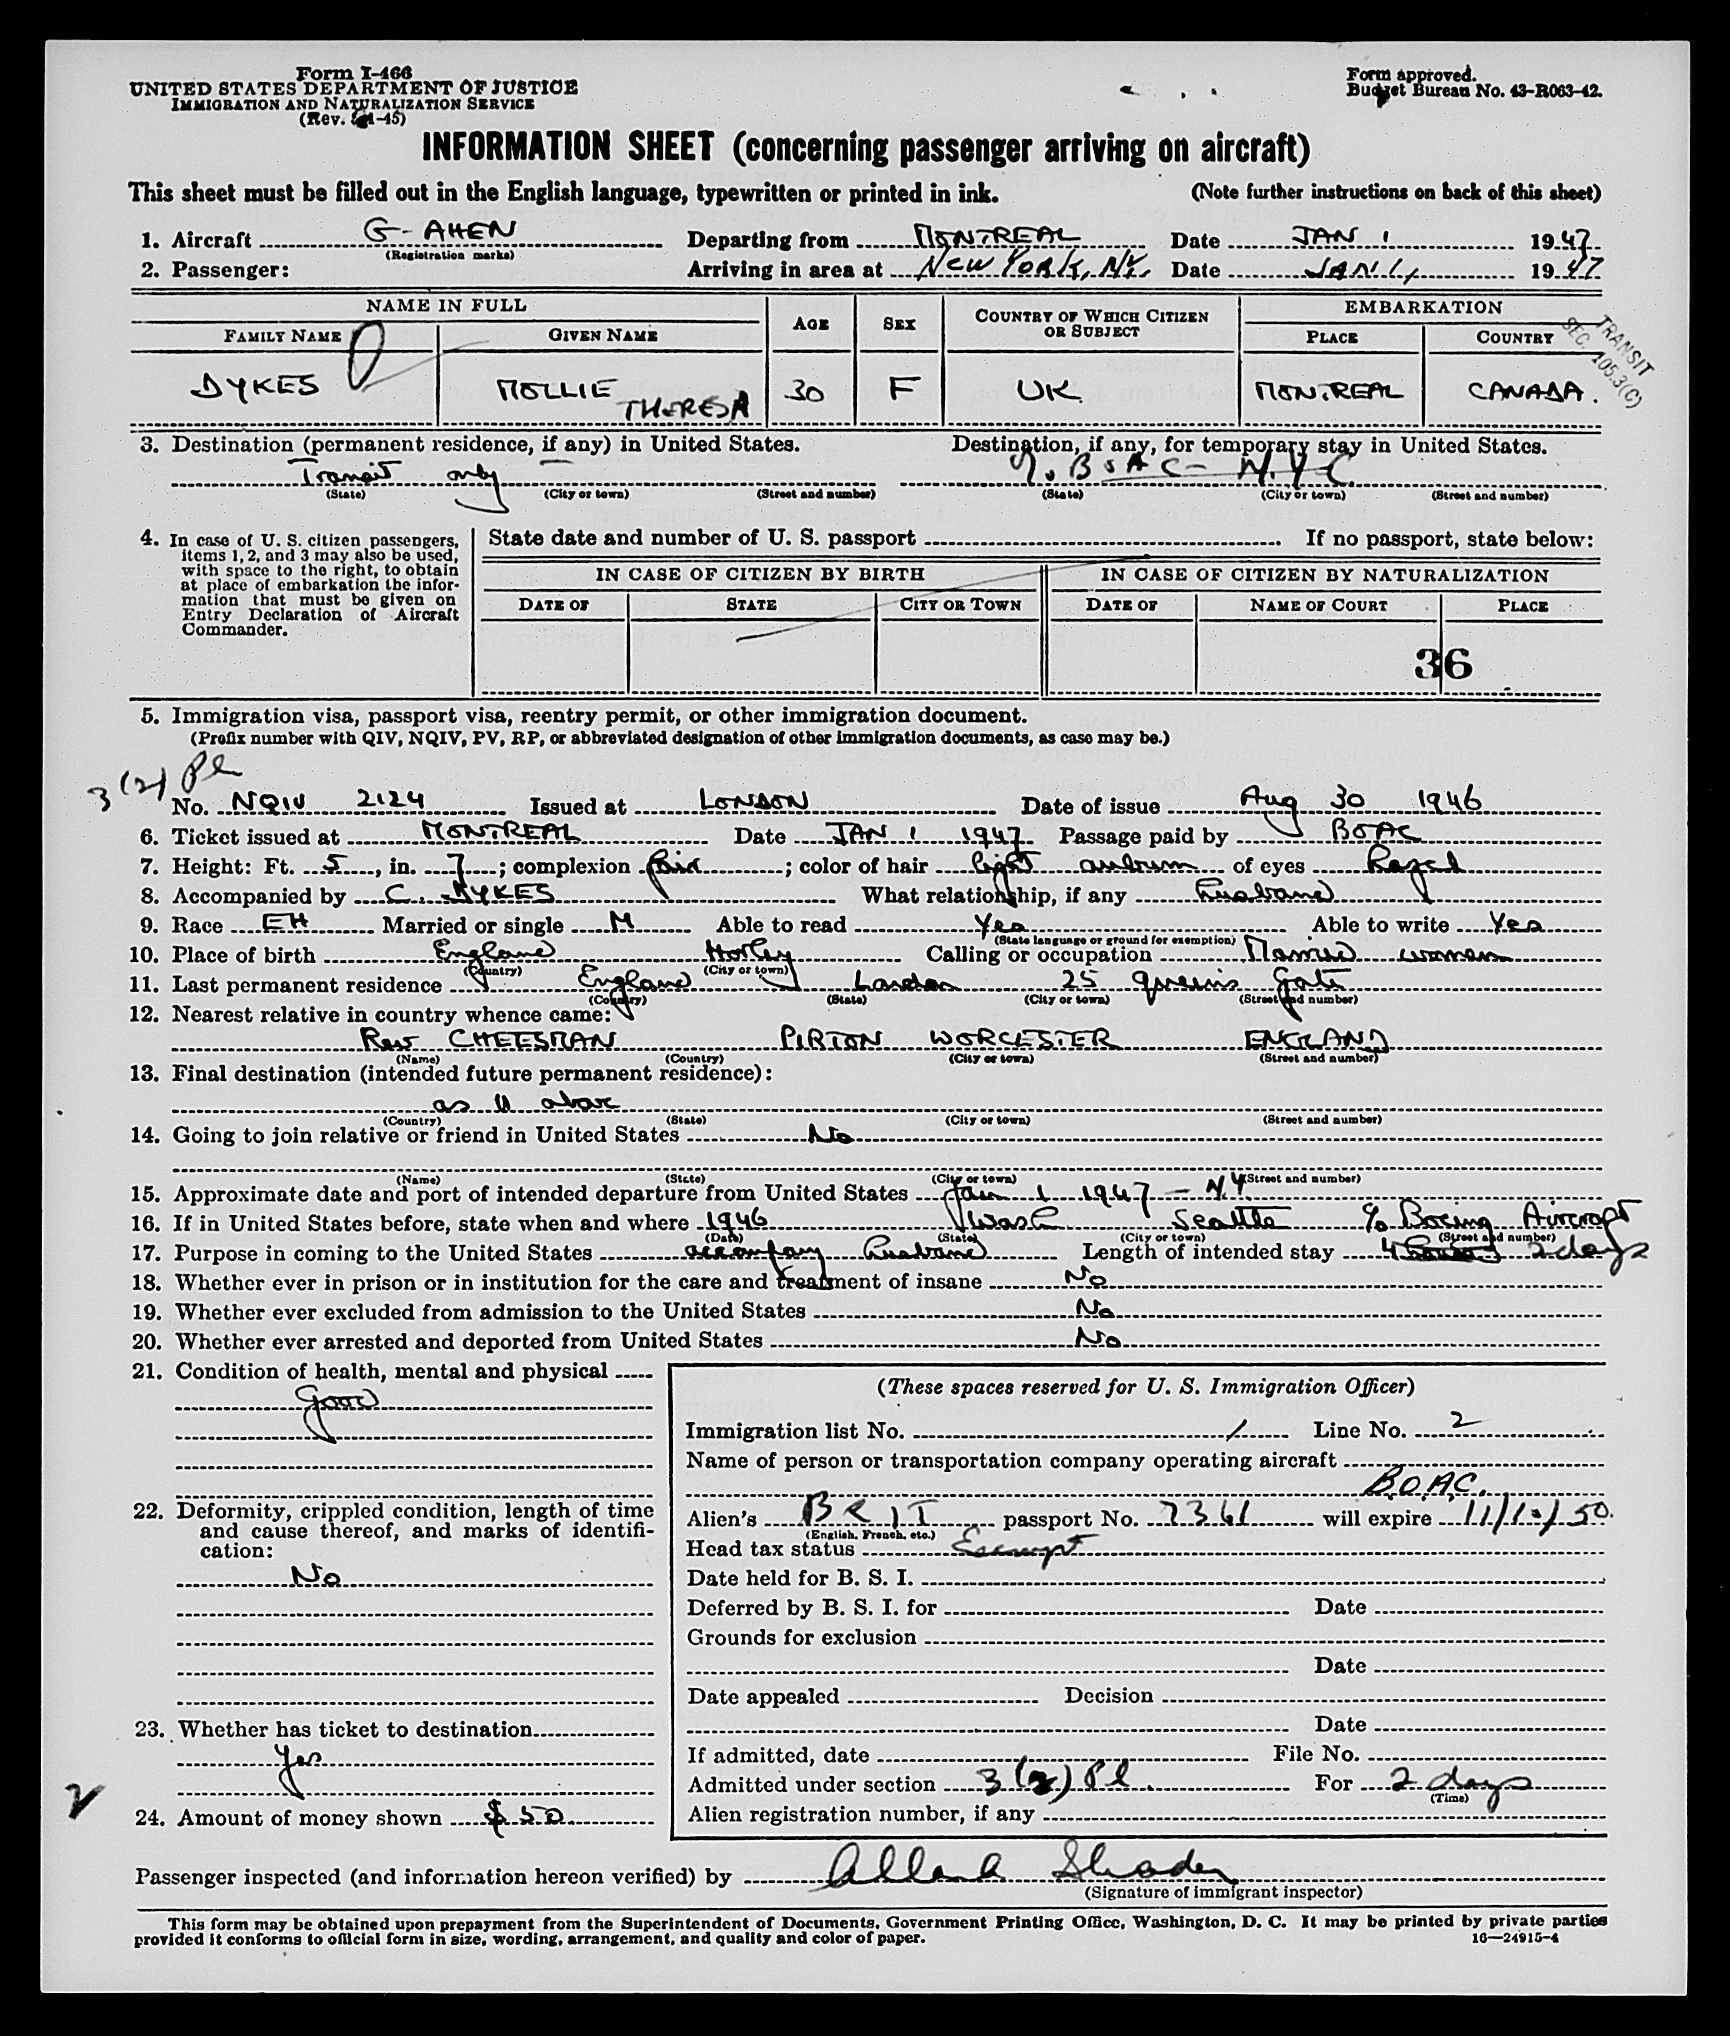 Form I-466
UNITED STATES DEPARTMENT OF JUSTICE
IMMIGRATION AND NATURALIZATION SERVICE
(Rev. -45)
Form approved.
Budget Bureau No. 43-R063-42.
INFORMATION SHEET (concerning passenger arriving on aircraft)
This sheet must be filled out in the English language, typewritten or printed in ink. (Note further instructions on back of this sheet)
1. Aircraft G-AHEN Departing from MONTREAL Date JAN 1 1947
(Registration marks)
2. Passenger: Arriving in area at NEW YORK, N.Y. Date JAN 1, 1947
NAME IN FULL AGE SEX COUNTRY OF WHICH CITIZEN OR SUBJECT EMBARKATION
FAMILY NAME GIVEN NAME PLACE COUNTRY
TRANSIT
SEC. 105.3(C)
DYKES MOLLIE THERESA 30 F UK MONTREAL CANADA.
3. Destination (permanent residence, if any) in United States. Destination, if any, for temporary stay in United States.
Transit only B.O.A.C - N.Y.C.
(State) (City or town) (Street and number) (State) (City or town) (Street and number)
4. In case of U. S. citizen passengers, items 1, 2, and 3 may also be used, with space to the right, to obtain at place of embarkation the information that must be given on Entry Declaration of Aircraft Commander.
State date and number of U. S. passport If no passport, state below:
IN CASE OF CITIZEN BY BIRTH IN CASE OF CITIZEN BY NATURALIZATION
DATE OF STATE CITY OR TOWN DATE OF NAME OF COURT PLACE
36
5. Immigration visa, passport visa, reentry permit, or other immigration document.
(Prefix number with QIV, NQIV, PV, RP, or abbreviated designation of other immigration documents, as case may be.)
3(2) Pl
No. NQIV 2124 Issued at LONDON Date of issue Aug 30 1946
6. Ticket issued at MONTREAL Date JAN 1 1947 Passage paid by BOAC
7. Height: Ft. 5, in. 7; complexion fair; color of hair light auburn of eyes Hazel
8. Accompanied by C. DYKES What relationship, if any Husband
9. Race EH Married or single M Able to read Yes Able to write Yes
(State language or ground for exemption)
10. Place of birth England Horley Calling or occupation Married woman
(Country) (City or town)
11. Last permanent residence England London 25 Queens Gate
(Country) (State) (City or town) (Street and number)
12. Nearest relative in country whence came:
Rev CHEESMAN PIRTON WORCESTER ENGLAND
(Name) (Country) (City or town) (Street and number)
13. Final destination (intended future permanent residence):
as 11 above
(Country) (State) (City or town) (Street and number)
14. Going to join relative or friend in United States No
(Name) (State) (City or town) (Street and number)
15. Approximate date and port of intended departure from United States Jan 1 1947 - N.Y.
16. If in United States before, state when and where 1946 Wash Seattle c/o Boeing Aircraft
(Date) (State) (City or town) (Street and number)
17. Purpose in coming to the United States accompany husband Length of intended stay 2 days
18. Whether ever in prison or in institution for the care and treatment of insane No
19. Whether ever excluded from admission to the United States No
20. Whether ever arrested and deported from United States No
21. Condition of health, mental and physical
Good
22. Deformity, crippled condition, length of time and cause thereof, and marks of identification:
No
23. Whether has ticket to destination
Yes
24. Amount of money shown $50
2
(These spaces reserved for U. S. Immigration Officer)
Immigration list No. 1 Line No. 2
Name of person or transportation company operating aircraft
B.O.A.C.
Alien's BRIT passport No. 7361 will expire 11/10/50.
(English, French, etc.)
Head tax status Exempt
Date held for B. S. I.
Deferred by B. S. I. for Date
Grounds for exclusion
Date
Date appealed Decision
Date
If admitted, date File No.
Admitted under section 3(2) Pl. For 2 days
(Time)
Alien registration number, if any
Passenger inspected (and information hereon verified) by
(Signature of immigrant inspector)
This form may be obtained upon prepayment from the Superintendent of Documents, Government Printing Office, Washington, D. C. It may be printed by private parties
provided it conforms to official form in size, wording, arrangement, and quality and color of paper. 16—24915-4